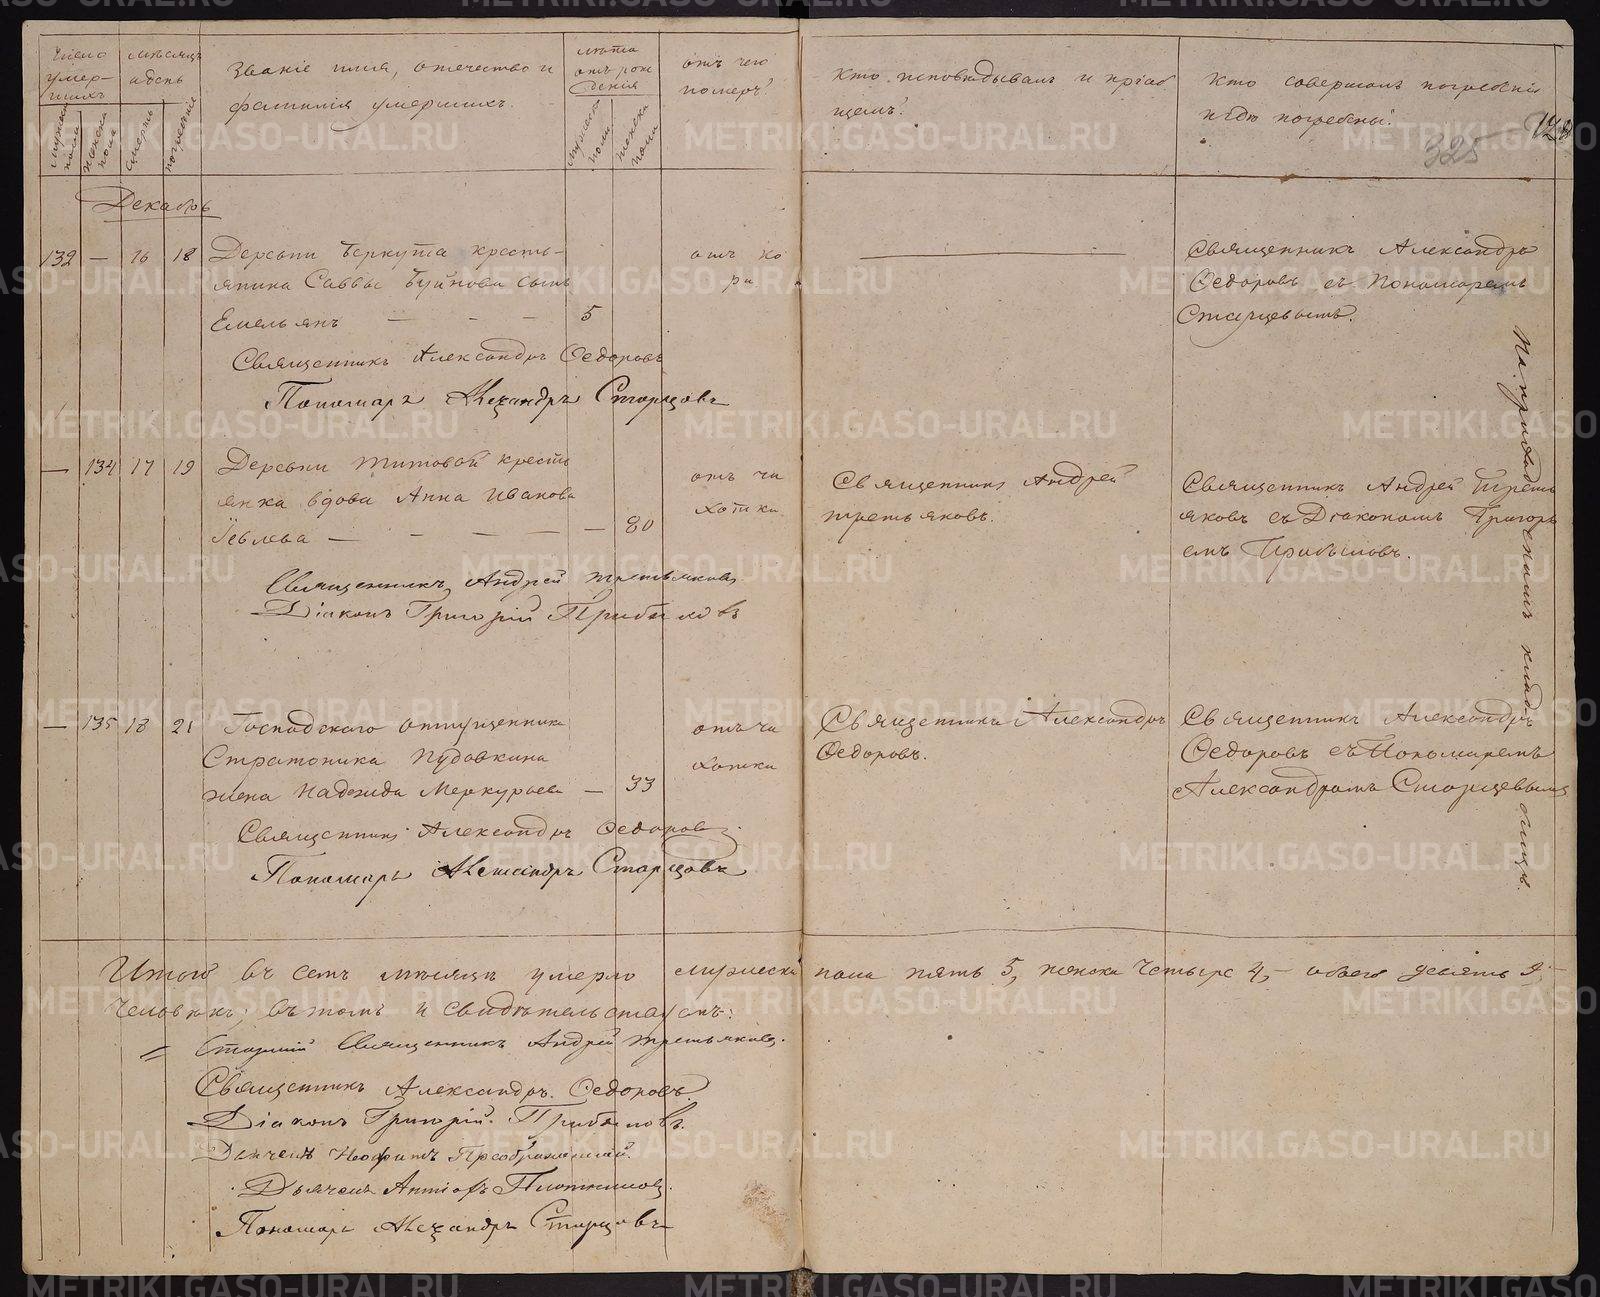 Число умер-шихъ
Мѣсяцъ и день
Званіе имя, отечество и
фамилія умершихъ.
Лѣта отъ рожденія
отъ чего
померъ?
Кто исповѣдывалъ и пріоб
щалъ?
Кто совершалъ погребеніе
и гдѣ погребены?
325
Мужеска пола
Женска пола
смерть
погребеніе
Мужеска пола
женска пола
Декабрь
132 — 16 18 Деревни Беркута кресть-
янина Саввы Буйнова сынъ
Емельянъ — - - 5
отъ ко
ри
Священникъ Александръ
Ѳедоровъ съ Пономаремъ
Старцевымъ.
Священникъ Александръ Ѳедоровъ
Пономарь Александръ Старцовъ
— 134 17 19 Деревни Титовой крестья
янка вдова Анна Иванова
Іевлева — - - — — 80
отъ ча
хотки
Священникъ Андрей
Третьяковъ.
Священникъ Андрей Треть
яковъ съ Діакономъ Григорі
емъ Прибыловъ.
Священникъ Андрей Третьяковъ
Діаконъ Григорій Прибыловъ
— 135 18 21 Господского отпущенника
Стратоника Пудовкина
жена Надежда Меркурьева — 33
отъ ча
хотки
Священникъ Александръ
Ѳедоровъ.
Священникъ Александръ
Ѳедоровъ съ Пономаремъ
Александромъ Старцевымъ
Священникъ Александръ Ѳедоровъ
Пономарь Александръ Старцовъ
На приходскомъ кладбищѣ.
Итого въ семъ мѣсяцѣ умерло мужеска пола пять 5, женска четыре 4, - обоего девять 9,-
человѣкъ; въ томъ и свидѣтельствуемъ:
Старшій Священникъ Андрей Третьяковъ.
Священникъ Александръ Ѳедоровъ.
Діаконъ Григорій Прибыловъ.
Дьячекъ Неофитъ Преображенскій.
Дьячекъ Антіохъ Плотниковъ.
Пономарь Александръ Старцовъ
METRIKI.GASO-URAL.RU